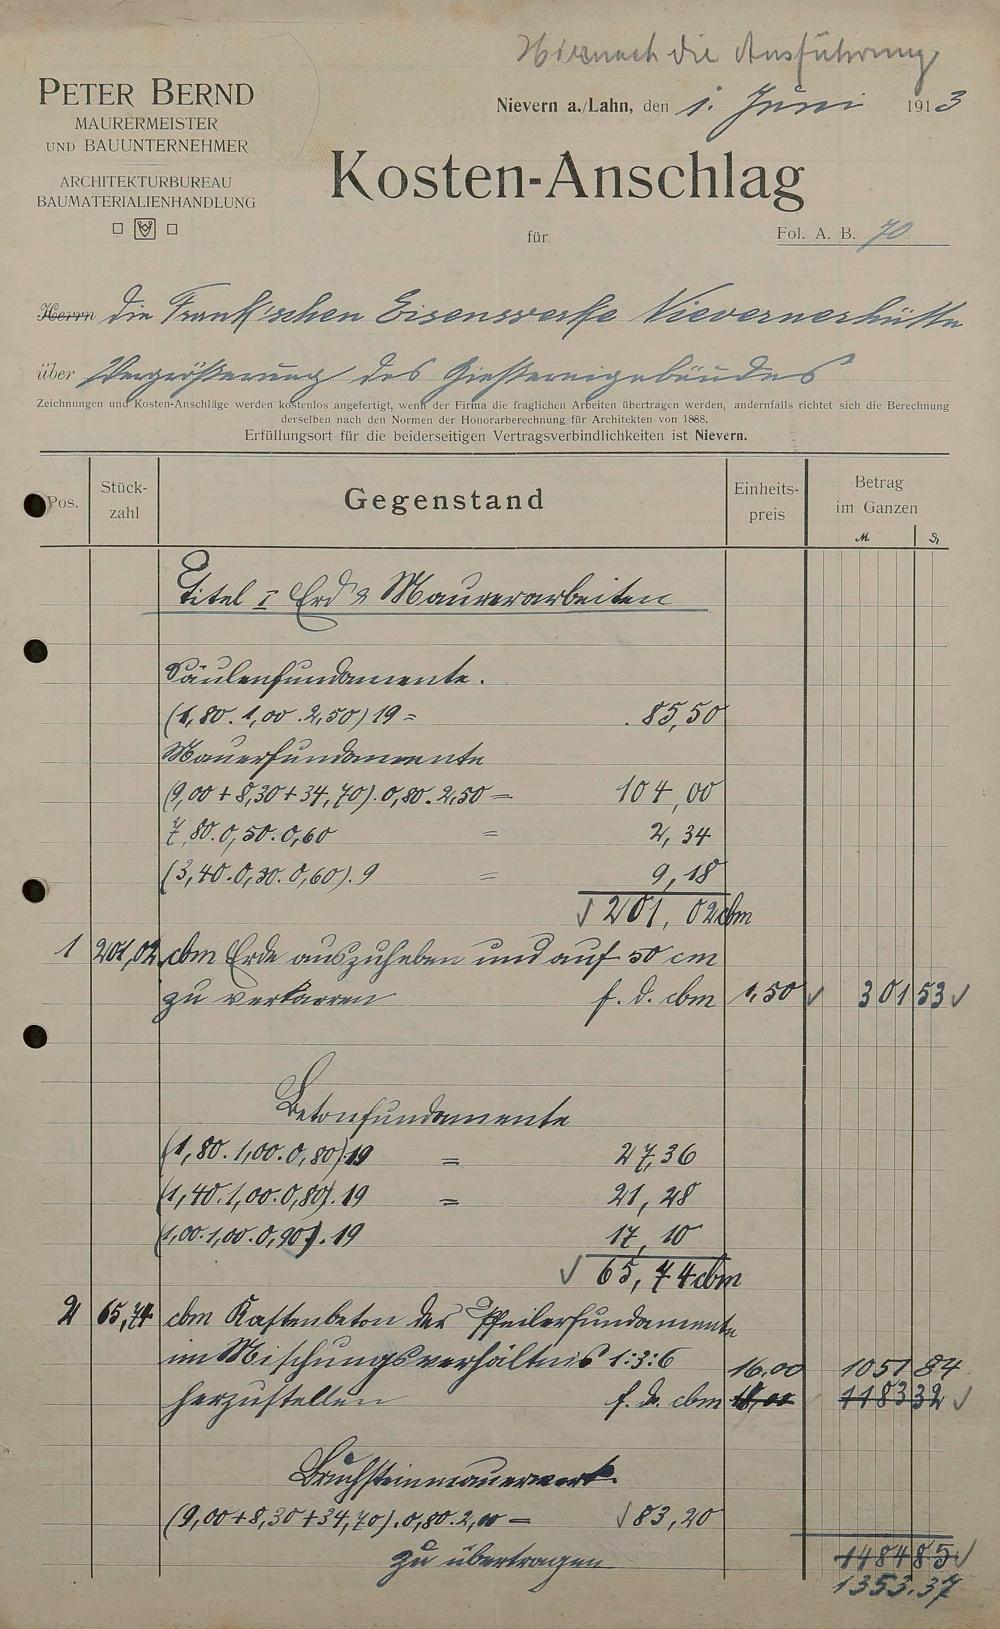 Hiernach die Ausführung
PETER BERND
MAURERMEISTER
UND BAUUNTERNEHMER
ARCHITEKTURBUREAU
BAUMATERIALIENHANDLUNG
Nievern a./Lahn, den 1. Juni 1913
Kosten-Anschlag
für
Fol. A. B. 70
Herrn die Frank'schen Eisenwerke Nievernerhütte
über Vergrößerung des Gießereigebäudes
Zeichnungen und Kosten-Anschläge werden kostenlos angefertigt, wenn der Firma die fraglichen Arbeiten übertragen werden, andernfalls richtet sich die Berechnung
derselben nach den Normen der Honorarberechnung für Architekten von 1888.
Erfüllungsort für die beiderseitigen Vertragsverbindlichkeiten ist Nievern.
Pos. Stück-zahl Gegenstand Einheits-preis Betrag im Ganzen
M. ₰
Titel I Erd & Maurerarbeiten
Säulenfundamente.
(1,80. 1,00. 2,50) 19 = 85,50
Mauerfundamente
(9,00 + 8,30 + 34,70). 0,80. 2,50 = 104,00
7,80. 0,50. 0,60 = 2,34
(3,40. 0,30. 0,60). 9 = 9,18
√ 201,02 cbm
1 201,02 cbm Erde auszuheben und auf 50 cm
zu verkarren f. d. cbm 1,50 √ 301 53 √
Betonfundamente
(1,80. 1,00. 0,80). 19 = 27,36
(1,40. 1,00. 0,80). 19 = 21,28
(1,00. 1,00. 0,90). 19 17,10
√ 65,74 cbm
2 65,74 cbm Kastenbeton der Pfeilerfundamente
im Mischungsverhältnis 1:3:6 16,00 1051 84
herzustellen f. d. cbm 18,00 1183 32 √
Bruchsteinmauerwerk.
(9,00 + 8,30 + 34,70). 0,80. 2,00 = √ 83,20
zu übertragen 1484 85 √
1353.37